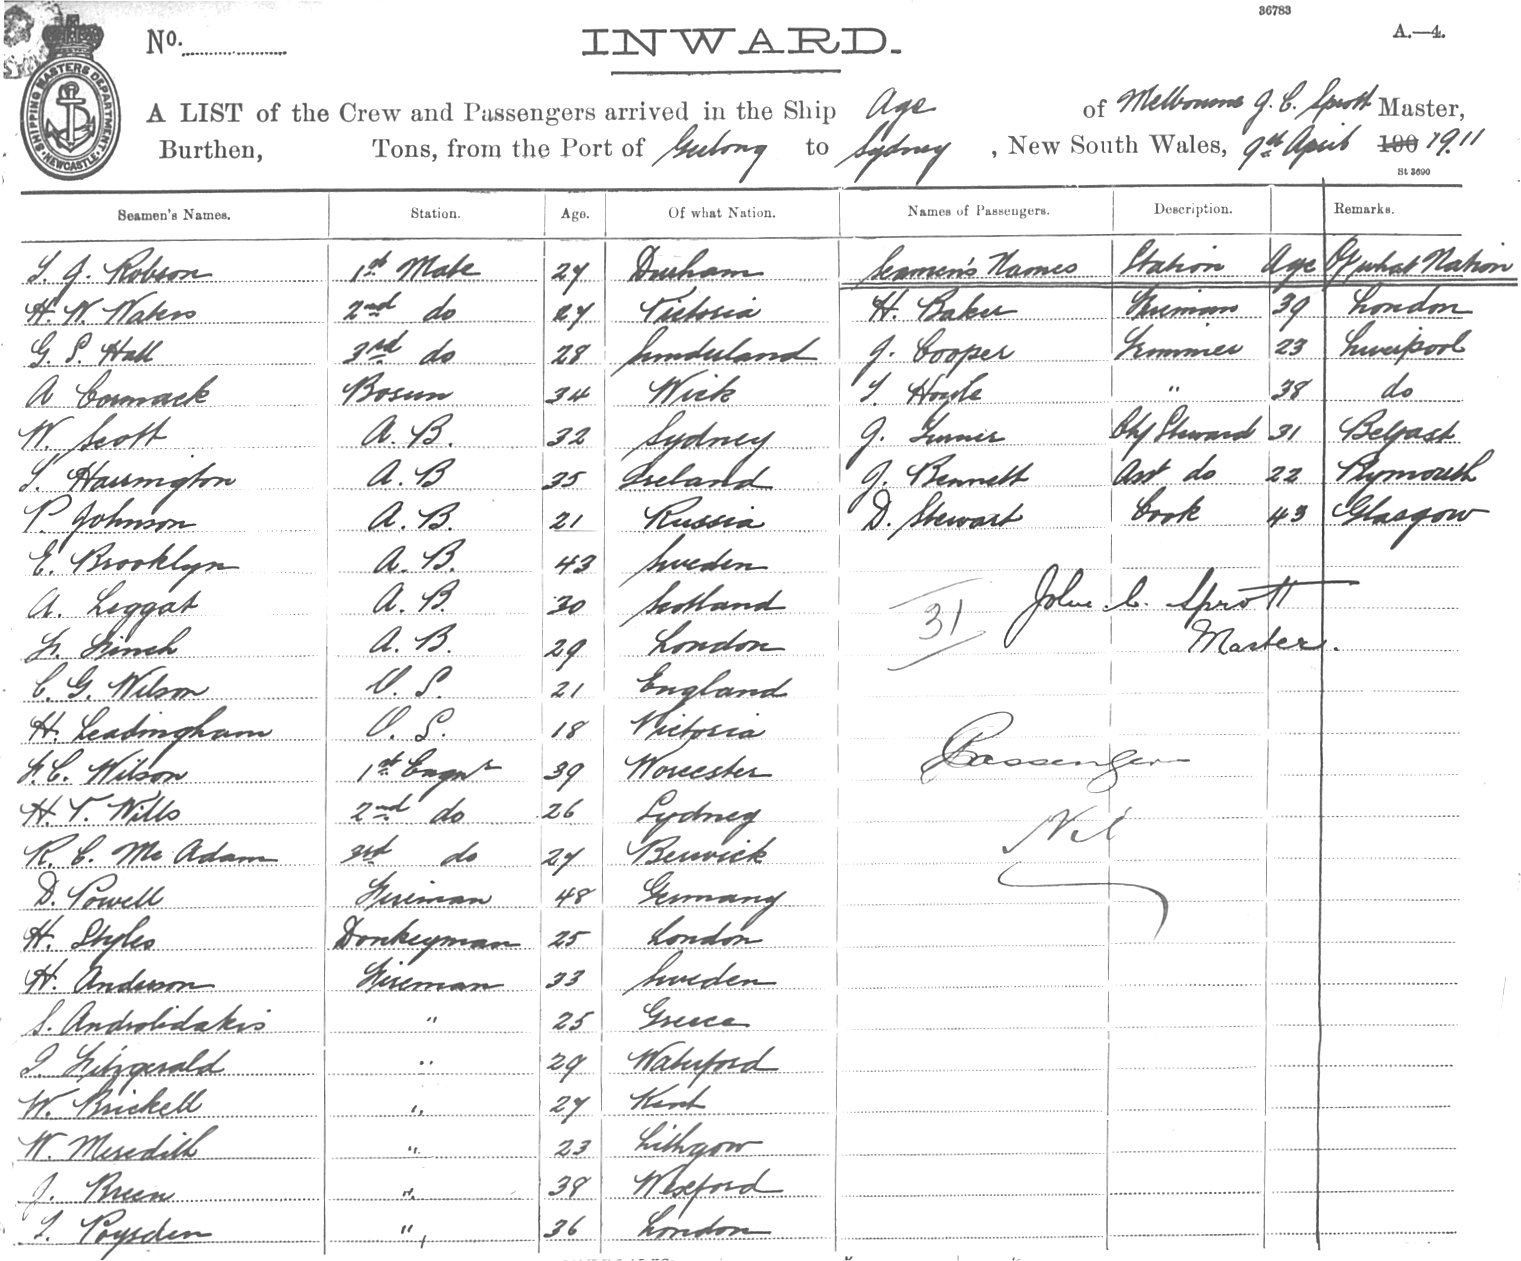 36783
No.
INWARD.
A.—4.
SHIPPING MASTERS DEPARTMENT
NEWCASTLE
A LIST of the Crew and Passengers arrived in the Ship Age of Melbourne J. C. Sprott Master,
Burthen, Tons, from the Port of Geelong to Sydney, New South Wales, 9th April 190 1911
St 3690
Seamen's Names. Station. Age. Of what Nation. Names of Passengers. Description. Remarks.
T. J. Robson 1st Mate 27 Durham Seamen's Names Station Age Of what Nation
H. W. Waters 2nd do 27 Victoria H. Baker Fireman 39 London
G. S. Hall 3rd do 28 Sunderland J. Cooper Trimmer 23 Liverpool
A Cormack Bosun 34 Wick T Hoyle " 38 do
W. Scott A. B. 32 Sydney J. Turner Chf Steward 31 Belfast
T. Harrington A. B 35 Ireland J. Bennett Asst do 22 Plymouth
P. Johnson A. B. 21 Russia D. Stewart Cook 43 Glasgow
E. Brooklyn A. B. 43 Sweden
A. Leggat A. B. 30 Scotland 31 John C. Sprott
F. Finch A. B. 29 London Master.
C. G. Wilson O. S. 21 England
H. Leadingham O. S. 18 Victoria
F. C. Wilson 1st Engnr 39 Worcester Passengers
H. T. Wills 2nd do 26 Sydney Nil
R. C. Mc Adam 3rd do 27 Berwick
D. Powell Fireman 48 Germany
H. Styles Donkeyman 25 London
H. Anderson Fireman 33 Sweden
S. Androlidakis " 25 Greece
J. Fitzgerald " 29 Waterford
W. Brickell " 27 Kent
W. Meredith " 23 Lithgow
J. Breen " 38 Wexford
T. Poysden " 36 London